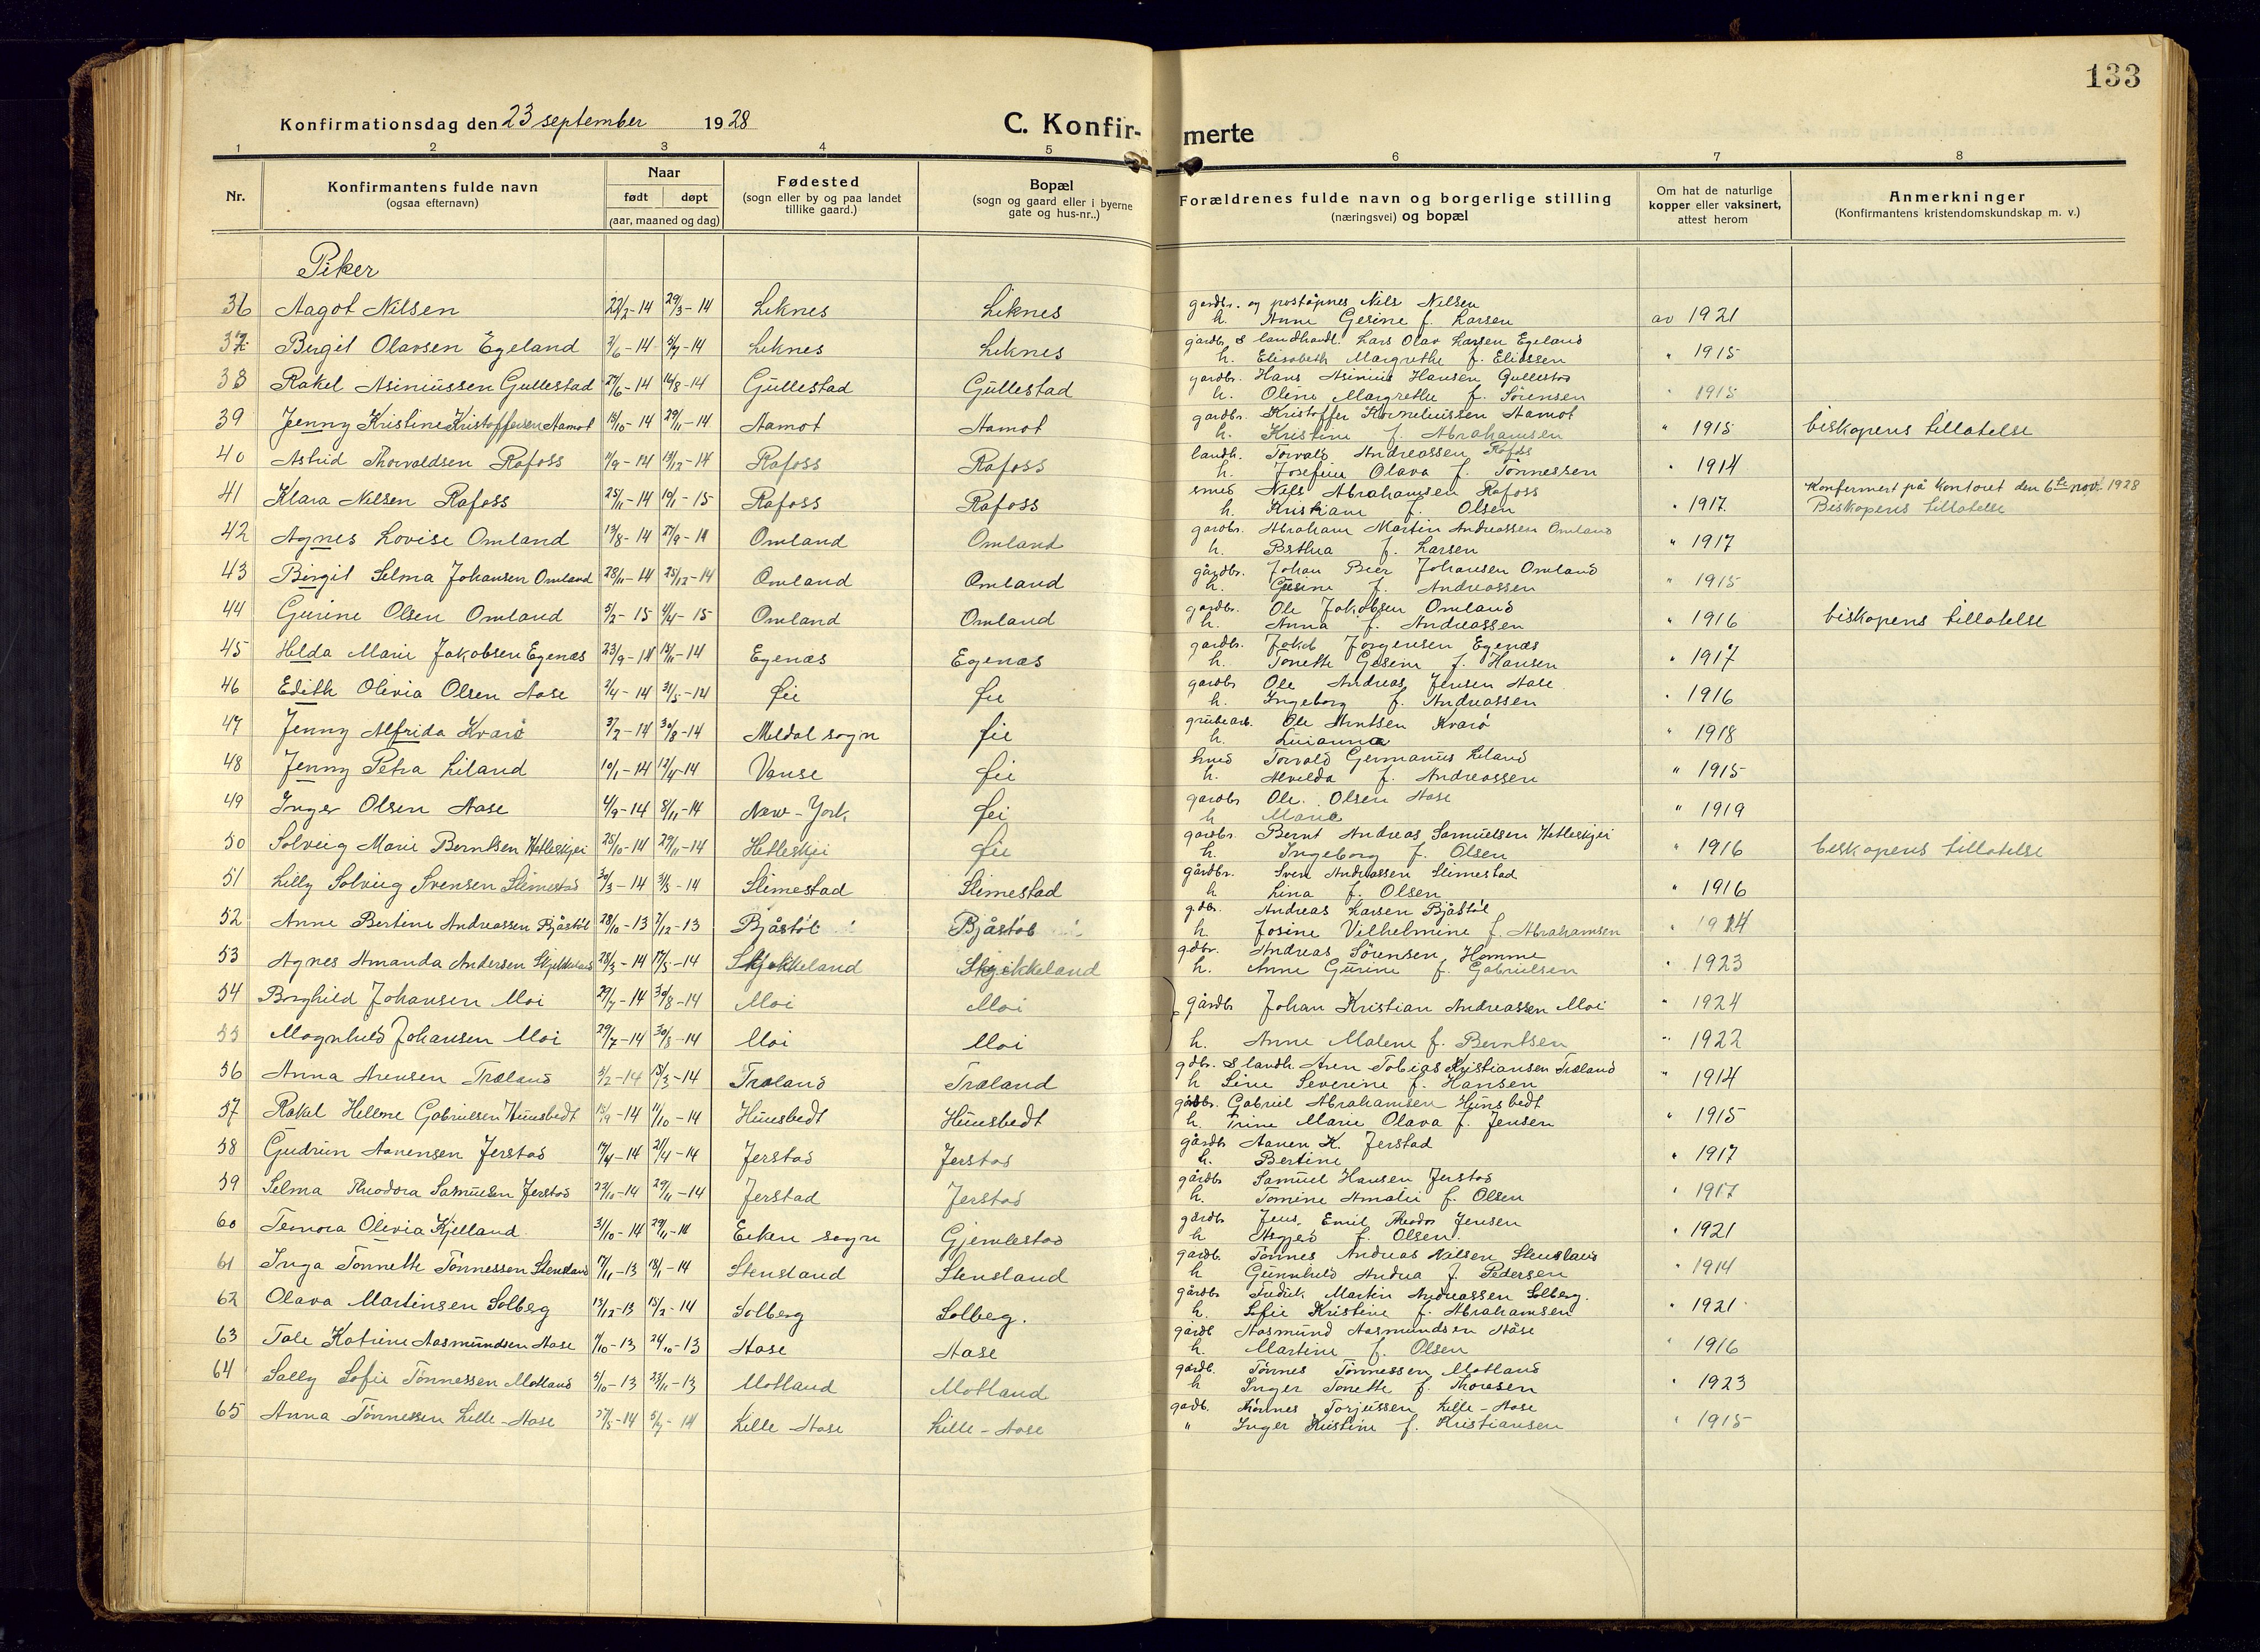 133
Konfirmationsdag den 23 september 1928
C. Konfir-merte
1 2 3 4 5 6 7 8
Nr.
Konfirmantens fulde navn
(ogsaa efternavn)
Naar
født døpt
(aar, maaned og dag)
Fødested
(sogn eller by og paa landet
tillike gaard.)
Bopæl
(sogn og gaard eller i byerne
gate og hus-nr..)
Forældrenes fulde navn og borgerlige stilling
(næringsvei) og bopæl
Om hat de naturlige
kopper eller vaksinert,
attest herom
Anmerkninger
(Konfirmantens kristendomskundskap m. v.)
Piker
36 Aagot Nilsen 22/2-14 29/3-14 Liknes Liknes gardbr. og poståpnes Nils Nilsen
h. Anne Gesine f. Larsen av 1921
37 Birgit Olavsen Egeland 2/6-14 5/7-14 Liknes Liknes gårdbr. & landhandl. Lars Olav Larsen Egeland
h. Elisabeth Margrethe f. Eliassen " 1915
38 Rakel Asiniussen Gullestad 27/6-14 16/8-14 Gullestad Gullestad gardbr. Hans Asinius Hansen Gullestad
h. Oline Margrethe f. Sørensen " 1915
39 Jenny Kristine Kristoffersen Aamot 18/10-14 29/11-14 Aamot Aamot gardbr. Kristoffer Korneliussen Aamot
h. Kristine f. Abrahamsen " 1915 biskopens tillatelse
40 Astrid Thorvaldsen Rafoss 11/9-14 13/12-14 Rafoss Rafoss landh. Torvald Andreassen Rafoss
h. Josefine Olava f. Tønnessen " 1914
41 Klara Nilsen Rafoss 25/11-14 10/1-15 Rafoss Rafoss smed Nils Abrahamsen Rafoss
h. Kristiane f. Olsen " 1917. Konfirmert på kontoret den 6te nov. 1928
Biskopens tillatelse
42 Agnes Lovise Omland 13/8-14 27/9-14 Omland Omland gardbr. Abraham Martin Andreassen Omland
h. Bertha f. Larsen " 1917
43 Birgit Selma Johansen Omland 28/11-14 25/12-14 Omland Omland gårdbr. Johan Beer Johansen Omland
h. Gusine f. Andreassen " 1915
44 Gurine Olsen Omland 5/2-15 4/4-15 Omland Omland gardbr. Ole Jakobsen Omland
h. Anna f. Andreassen " 1916 biskopens tillatelse
45 Hilda Marie Jakobsen Egenæs 23/9-14 15/11-14 Egenæs Egenæs gardbr. Jakob Jørgensen Egenæs
h. Tonette Gesine f. Hansen " 1917
46 Edith Olivia Olsen Aase 2/4-14 31/5-14 Fie Fie gardbr Ole Andreas Jensen Aase
h. Ingeborg f. Andreassen " 1916
47 Jenny Alfrida Kvarø 3/2-14 30/8-14 Meldal sogn Fie grubearb. Ole Arntsen Kvarø
h. Livianna " 1918
48 Jenny Petra Liland 10/1-14 12/4-14 Vanse Fie Smed Torvald Germanius Liland
h. Alvilda f. Andreassen " 1915
49 Inger Olsen Aase 4/9-14 8/11-14 New-York Fei gardbr Ole Olsen Aase
h Marie " 1919
50 Solveig Marie Berntsen Hetleskjei 25/10-14 29/11-14 Hetleskjei Fie gardbr. Bernt Andreas Samuelsen Hetleskjei
h. Ingeborg f. Olsen " 1916 biskopens tillatelse
51 Lilly Solveig Svensen Slimestad 30/3-14 3/5-14 Slimestad Slimestad gårdbr. Sven Andreassen Slimestad
h Lina f. Olsen " 1916
52 Anne Bertine Andreassen Bjåstøl 28/10-13 7/12-13 Bjåstøl Bjåstøl gdbr. Andreas Larsen Bjåstøl
h. Josine Vilhelmine f. Abrahamsen " 1914
53 Agnes Amanda Andersen Skjekkeland 28/3-14 17/5-14 Skjekkeland Skjekkeland gdbr. Andreas Sörensen Homme
h. Anne Gurine f. Gabrielsen " 1923
54 Borghild Johansen Moi 29/7-14 30/8-14 Moi Moi gårdb Johan Kristian Andreassen Moi " 1924
55 Magnhild Johansen Moi 29/7-14 30/8-14 Moi Moi h. Anne Malene f. Berntsen " 1922
56 Anna Arensen Træland 3/2-14 15/3-14 Træland Træland gdbr. & landh. Aren Tobias Kristiansen Træland
h Line Severine f. Hansen " 1914
57 Rakel Hellene Gabrielsen Hunsbedt 15/9-14 11/10-14 Hunsbedt Hunsbedt gårdbr. Gabriel Abrahamsen Hunsbedt
h. Trine Marie Olava f. Jensen " 1915
58 Gudrun Aanensen Jerstad 17/4-14 21/4-14 Jerstad Jerstad gårdb Aanen K. Jerstad
h. Bertine " 1917
59 Selma Theodora Samuelsen Jerstad 23/10-14 29/11-14 Jerstad Jerstad gårdb Samuel Hansen Jerstad
h. Tomine Amalie f. Olsen " 1917
60 Temora Olevia Kjelland 31/10-14 29/11-14 Eiken sogn Gjemlestad gårdb Jens Emil Theodor Jensen
h Asgjerd f. Olsen. " 1921
61 Inga Tonnette Tönnessen Stensland 17/11-13 18/1-14 Stensland Stensland gårdb Tönnes Andreas Nilsen Stensland
h Gunnhild Andrea f. Pedersen " 1914
62 Olava Martinsen Solberg 13/12-13 15/2-14 Solberg Solbeg. gårdbr Fredrik Martin Andreassen Solberg.
h. Sofie Kristine f. Abrahamsen " 1921
63 Tale Katrine Aasmundsen Aase 11/10-13 24/10-13 Aase Aase gårdb Aasmund Aasmundsen Aase
h. Martine f. Olsen " 1916
64 Sally Sofie Tönnessen Motland 5/10-13 23/11-13 Motland Motland gårdb. Tönnes Tönnessen Motland
h Inger Tonette f. Thoresen " 1923
65 Anna Tönnessen Lille-Aase 27/5-14 5/7-14 Lille Aase Lille-Aase gadb. Tönnes Torjussen Lille-Aase
" Inger Kristine f. Kristiansen " 1915